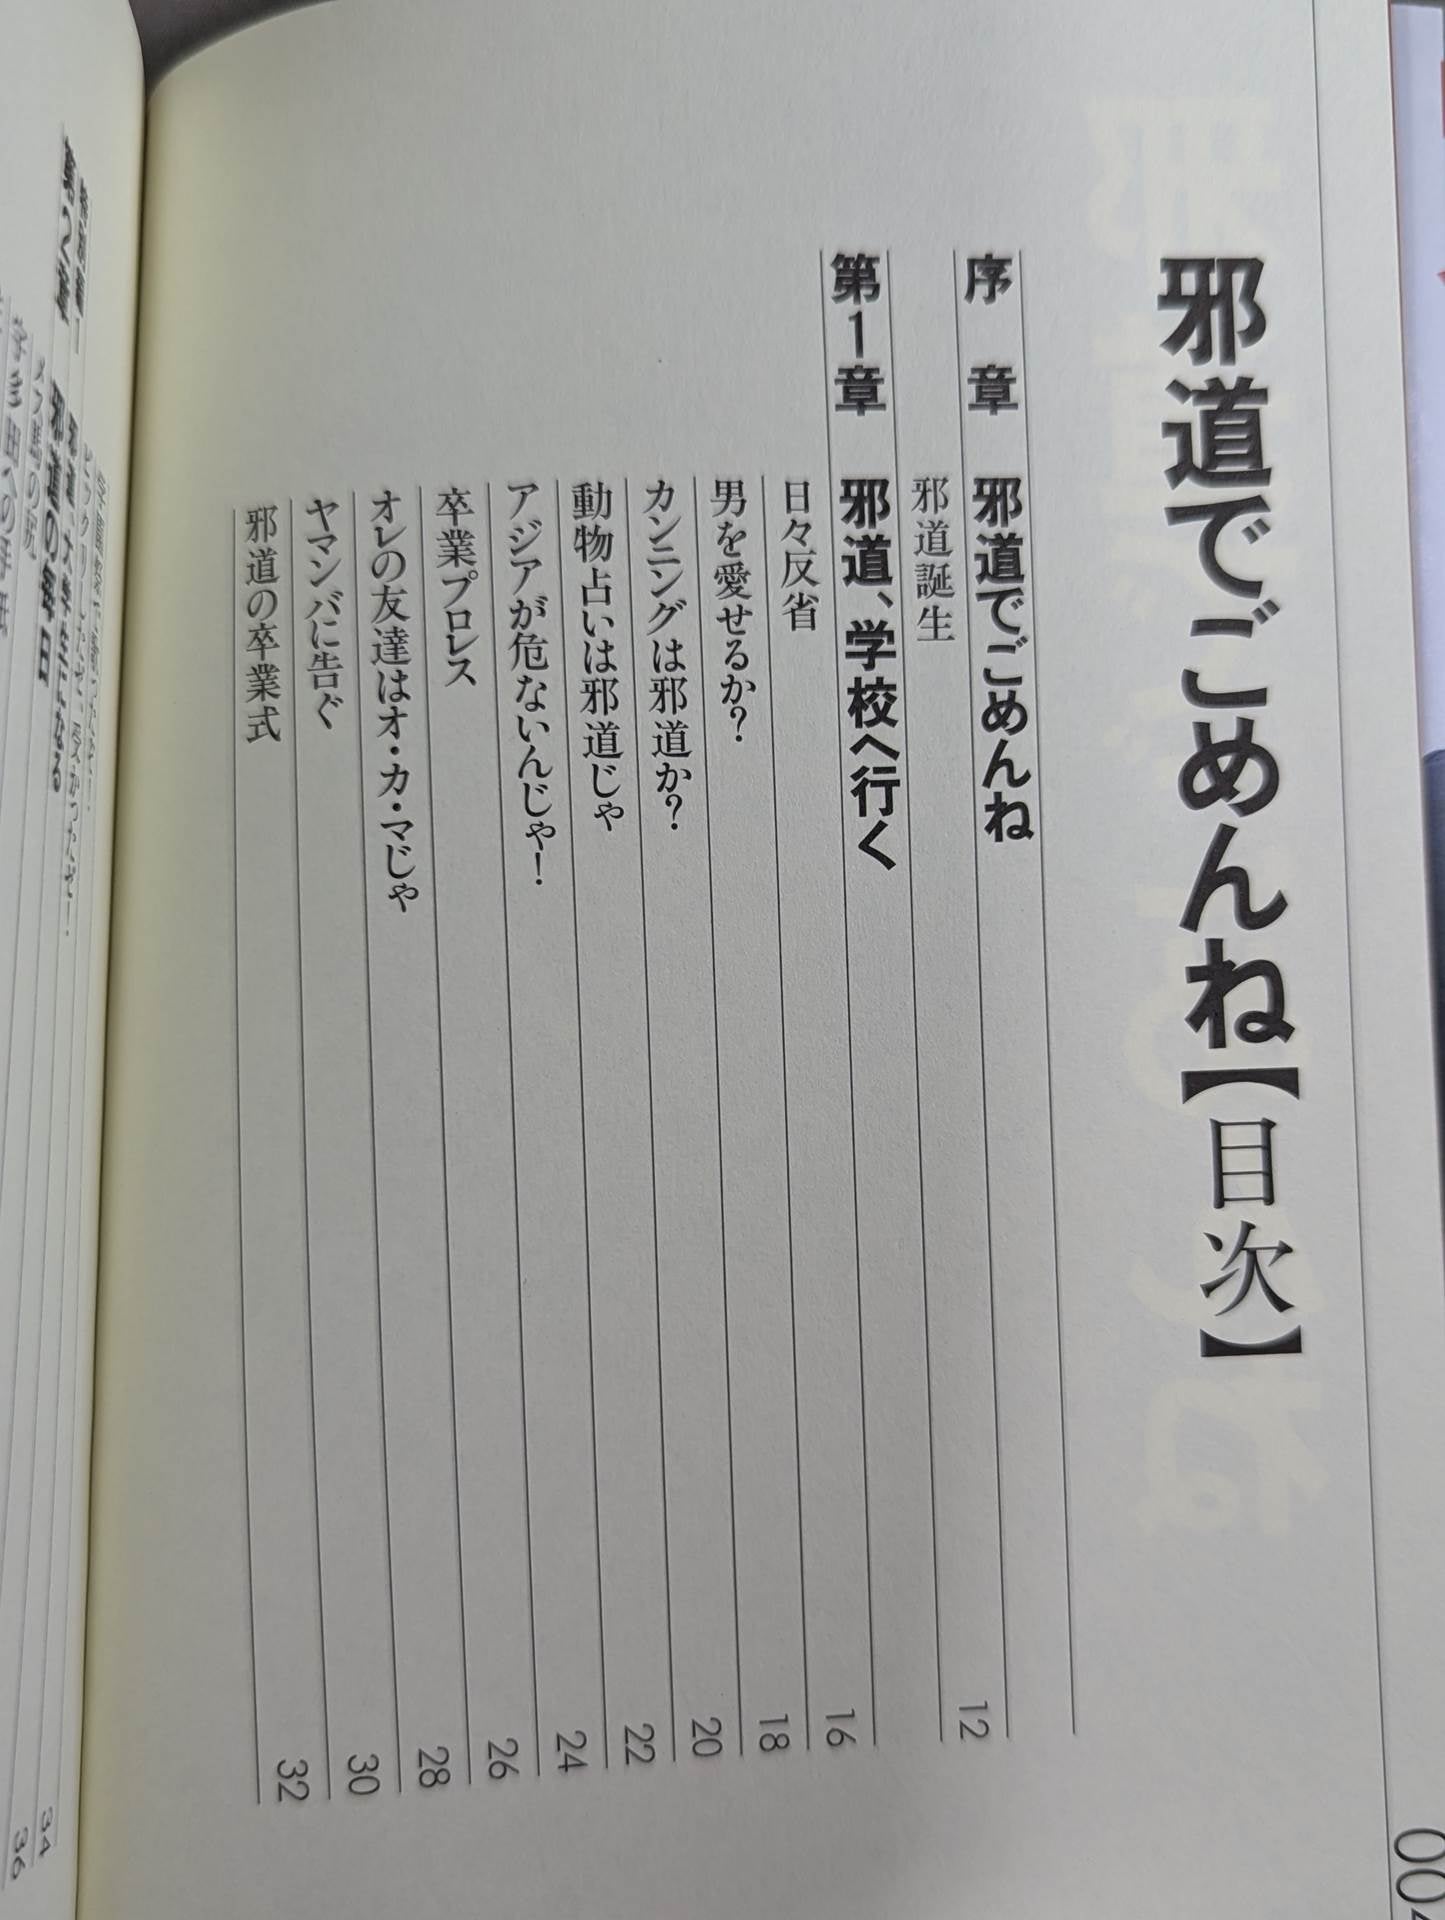 邪道でごめんね【目次】
序章 邪道でごめんね
邪道誕生 12
第1章 邪道、学校へ行く
日々反省 16
男を愛せるか? 18
カンニングは邪道か? 20
動物占いは邪道じゃ 22
アジアが危ないんじゃ! 24
卒業プロレス 26
オレの友達はオ・カ・マじゃ 28
ヤマンバに告ぐ 30
邪道の卒業式 32
ビックリしたぞ、受かったぞ! 34
36
第2章 邪道の毎日